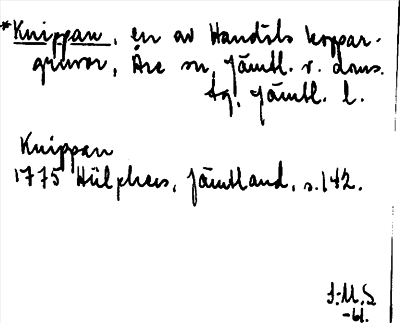 *Knippan, en av Handöls koppar-
gruvor, Åre sn, Jämtl. v. doms.
tg, Jämtl. l.
Knippan
1775 Hülphers, Jämtland, s. 142.
I.M.S
-61.